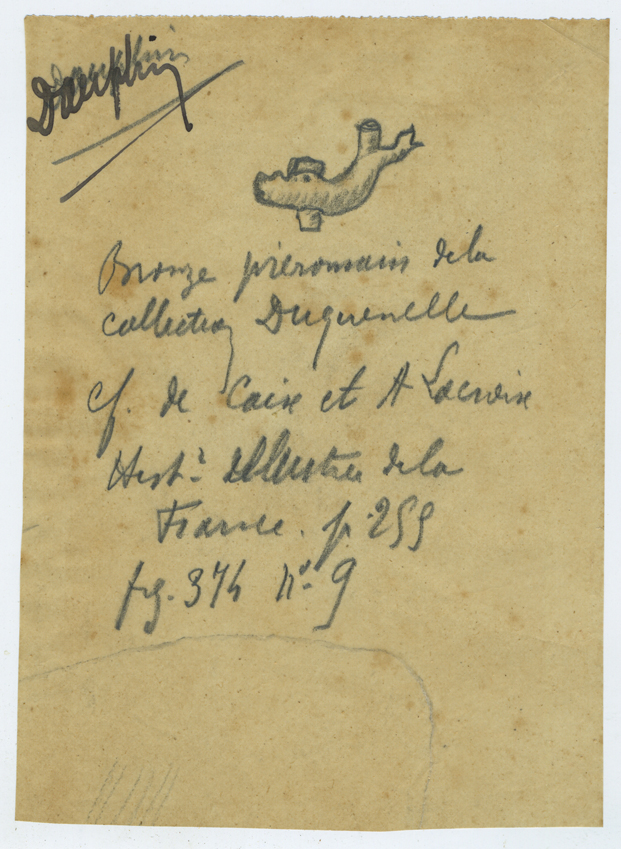 Dauphin
Bronze préromain de la
collection Duquenelle
cf. de Caix et A Lacroix
Hist.^e Illustrée de la
France. p. 255
fig. 374 n° 9